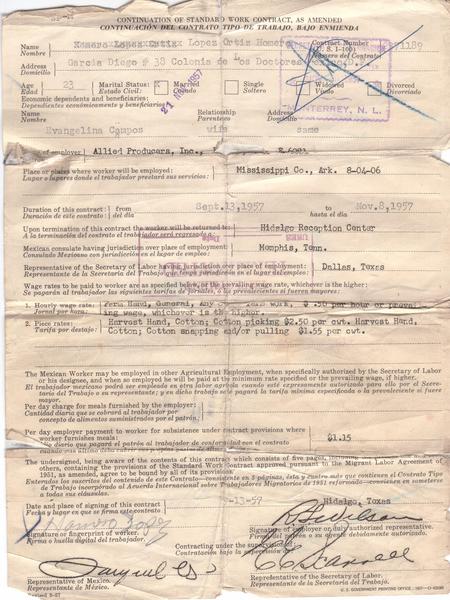 CONTINUATION OF STANDARD WORK CONTRACT, AS AMENDED
CONTINUACIÓN DEL CONTRATO TIPO DE TRABAJO, BAJO ENMIENDA
Name Homero Lopez Ortiz Lopez Ortiz Homero
Nombre
Contract Number
(U. S. I-100)
Número del Contrato
Address Garcia Diego # 38 Colonia de Los Doctores
Domicilio
Age 23 Marital Status: Married Single Widowed Divorced
Edad Estado Civil: Casado Soltero Viudo Divorciado
21 NOV 1957
MONTERREY, N. L.
Economic dependents and beneficiaries:
Dependientes económicamente y beneficiarios:
Name Relationship Address
Nombre Parentesco Domicilio
Evangelina Campos wife same
of employer Allied Producers, Inc.,
Place or places where worker will be employed: Mississippi Co., Ark. 8-04-06
Lugar o lugares donde el trabajador prestará sus servicios:
Duration of this contract: from Sept.13,1957 to Nov.8,1957
Duración de este contrato: del día hasta el día
Upon termination of this contract the worker will be returned to: Hidalgo Reception Center
A la terminación del contrato el trabajador será regresado a:
Mexican consulate having jurisdiction over place of employment: Memphis, Tenn.
Consulado Mexicano con jurisdicción en el lugar de empleo:
Representative of the Secretary of Labor having jurisdiction over place of employment: Dallas, Texas
Representante de la Secretaría del Trabajo que tenga jurisdicción en el lugar del empleo:
Wage rates to be paid to worker are as specified below, or the prevailing wage rate, whichever is the higher:
Se pagarán al trabajador las siguientes tarifas de jornales, o las prevalecientes si fueren mayores.
1. Hourly wage rate: Farm Hand, General, Any work, $ .50 per hour or prevailing wage, whichever is the higher.
Jornal por hora:
2. Piece rates: Harvest Hand, Cotton; Cotton picking $2.50 per cwt. Harvest Hand,
Tarifa por destajo: Cotton; Cotton snapping and/or pulling $1.55 per cwt.
The Mexican Worker may be employed in other Agricultural Employment, when specifically authorized by the Secretary of Labor
or his designee, and when so employed he will be paid at the minimum rate specified or the prevailing wage rate, if higher.
El trabajador mexicano podrá ser empleado en otra labor agrícola cuando esté expresamente autorizado para ello por el Secretario
del Trabajo o su representante; y en dicho trabajo se le pagará la tarifa mínima especificada o la prevaleciente si fuere
mayor.
Per day charge for meals furnished by the employer:
Cantidad diaria que se cobrará al trabajador por
concepto de alimentos suministrados por el patrón.
Per day employer payment to worker for subsistence under contract provisions where
worker furnishes meals: $1.15
The undersigned, being aware of the contents of this contract which consists of five pages, including
others, containing the provisions of the Standard Work Contract approved pursuant to the Migrant Labor Agreement of
1951, as amended, agree to be bound by all of its provisions
Date and place of signing of this contract -13-57 Hidalgo, Texas
Fecha y lugar en que se firma este contrato
Signature or fingerprint of worker.
Firma o huella digital del trabajador.
Signature of employer or duly authorized representative.
Firma del patrón o su agente debidamente autorizado.
Contracting under the supervision
Contratación bajo la supervisión
Representative of Mexico.
Representante de México.
Representative of the Secretary of Labor.
Representante de la Secretaría del Trabajo.
Revised
U. S. GOVERNMENT PRINTING OFFICE